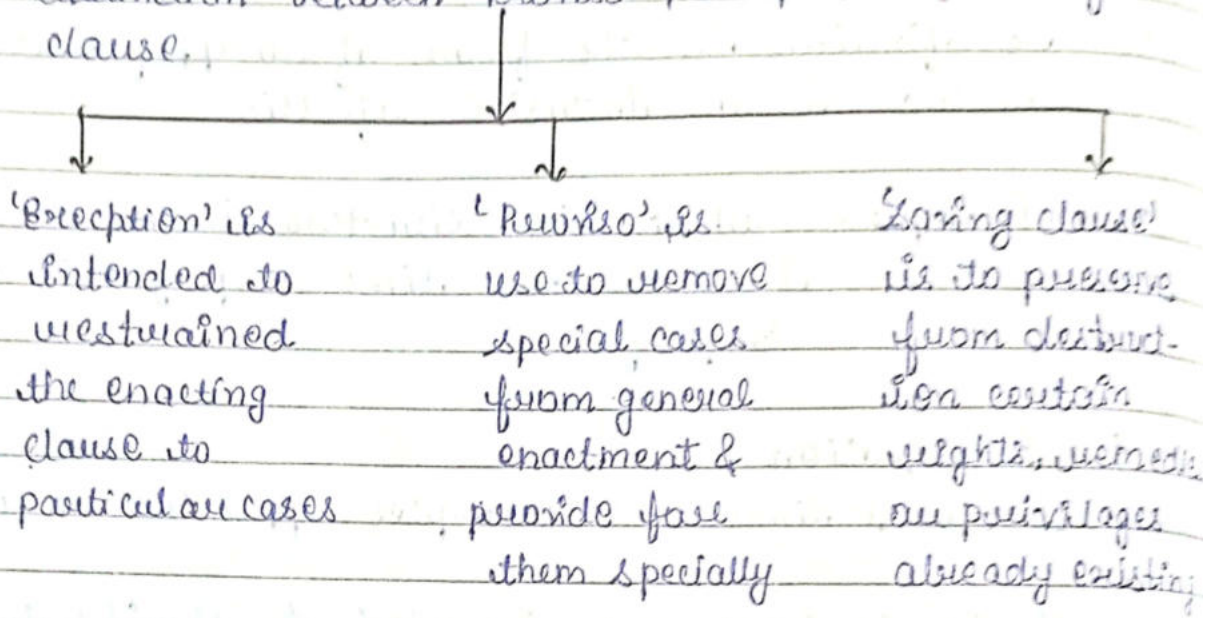 between
clause.
'Exception' is
intended to
restrained
the enacting
clause to
particular cases
'Proviso' is
use to remove
special cases
from general
enactment &
provide for
them specially
'Saving clause'
is to preserve
from destruct-
ion certain
rights, remedie
or privilages
already existing